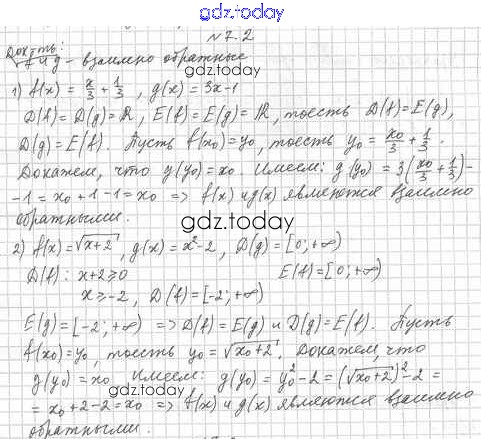 gdz.today
№ 7.2
Док-ть:
f и g - взаимно обратные
gdz.today
1) f(x) = x/3 + 1/3, g(x) = 3x-1
D(f) = D(g) = ℝ, E(f) = E(g) = ℝ, то есть D(f) = E(g),
D(g) = E(f). Пусть f(x₀) = y₀, то есть y₀ = x₀/3 + 1/3.
Докажем, что g(y₀) = x₀. Имеем: g(y₀) = 3(x₀/3 + 1/3) -
-1 = x₀ + 1 - 1 = x₀ => f(x) и g(x) являются взаимно
обратными.
gdz.today
2) f(x) = √(x+2), g(x) = x² - 2, D(g) = [0; +∞)
D(f): x+2 ≥ 0 E(f) = [0; +∞)
x ≥ -2, D(f) = [-2; +∞)
E(g) = [-2; +∞) => D(f) = E(g) и D(g) = E(f). Пусть
f(x₀) = y₀, то есть y₀ = √(x₀+2). Докажем, что
g(y₀) = x₀. Имеем: g(y₀) = y₀² - 2 = (√(x₀+2))² - 2 =
gdz.today
= x₀ + 2 - 2 = x₀ => f(x) и g(x) являются взаимно
обратными.